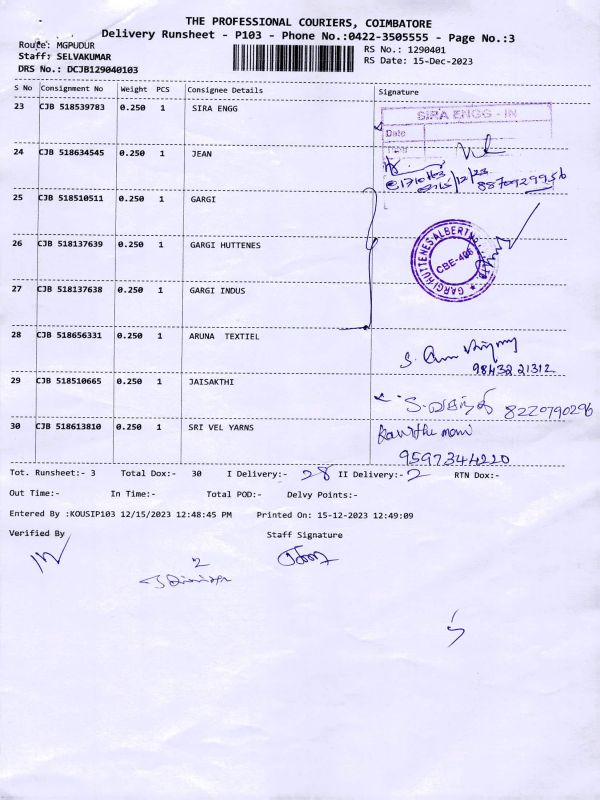 THE PROFESSIONAL COURIERS, COIMBATORE
Delivery Runsheet - P103 - Phone No.:0422-3505555 - Page No.:3
Route: MGPUDUR
RS No.: 1290401
Staff: SELVAKUMAR
RS Date: 15-Dec-2023
DRS No.: DCJB129040103
S No Consignment No Weight PCS Consignee Details Signature
23 CJB 518539783 0.250 1 SIRA ENGG
SIRA ENGG - IN
Date
24 CJB 518634545 0.250 1 JEAN
15/12/23 8870929956
25 CJB 518510511 0.250 1 GARGI
26 CJB 518137639 0.250 1 GARGI HUTTENES
GARGI HUTTENES-ALBERTNS
CBE-406
27 CJB 518137638 0.250 1 GARGI INDUS
28 CJB 518656331 0.250 1 ARUNA TEXTIEL
9843221312
29 CJB 518510665 0.250 1 JAISAKTHI
8220790296
30 CJB 518613810 0.250 1 SRI VEL YARNS
9597344220
Tot. Runsheet:- 3 Total Dox:- 30 I Delivery:- 28 II Delivery:- 2 RTN Dox:-
Out Time:- In Time:- Total POD:- Delvy Points:-
Entered By :KOUSIP103 12/15/2023 12:48:45 PM Printed On: 15-12-2023 12:49:09
Verified By Staff Signature
2